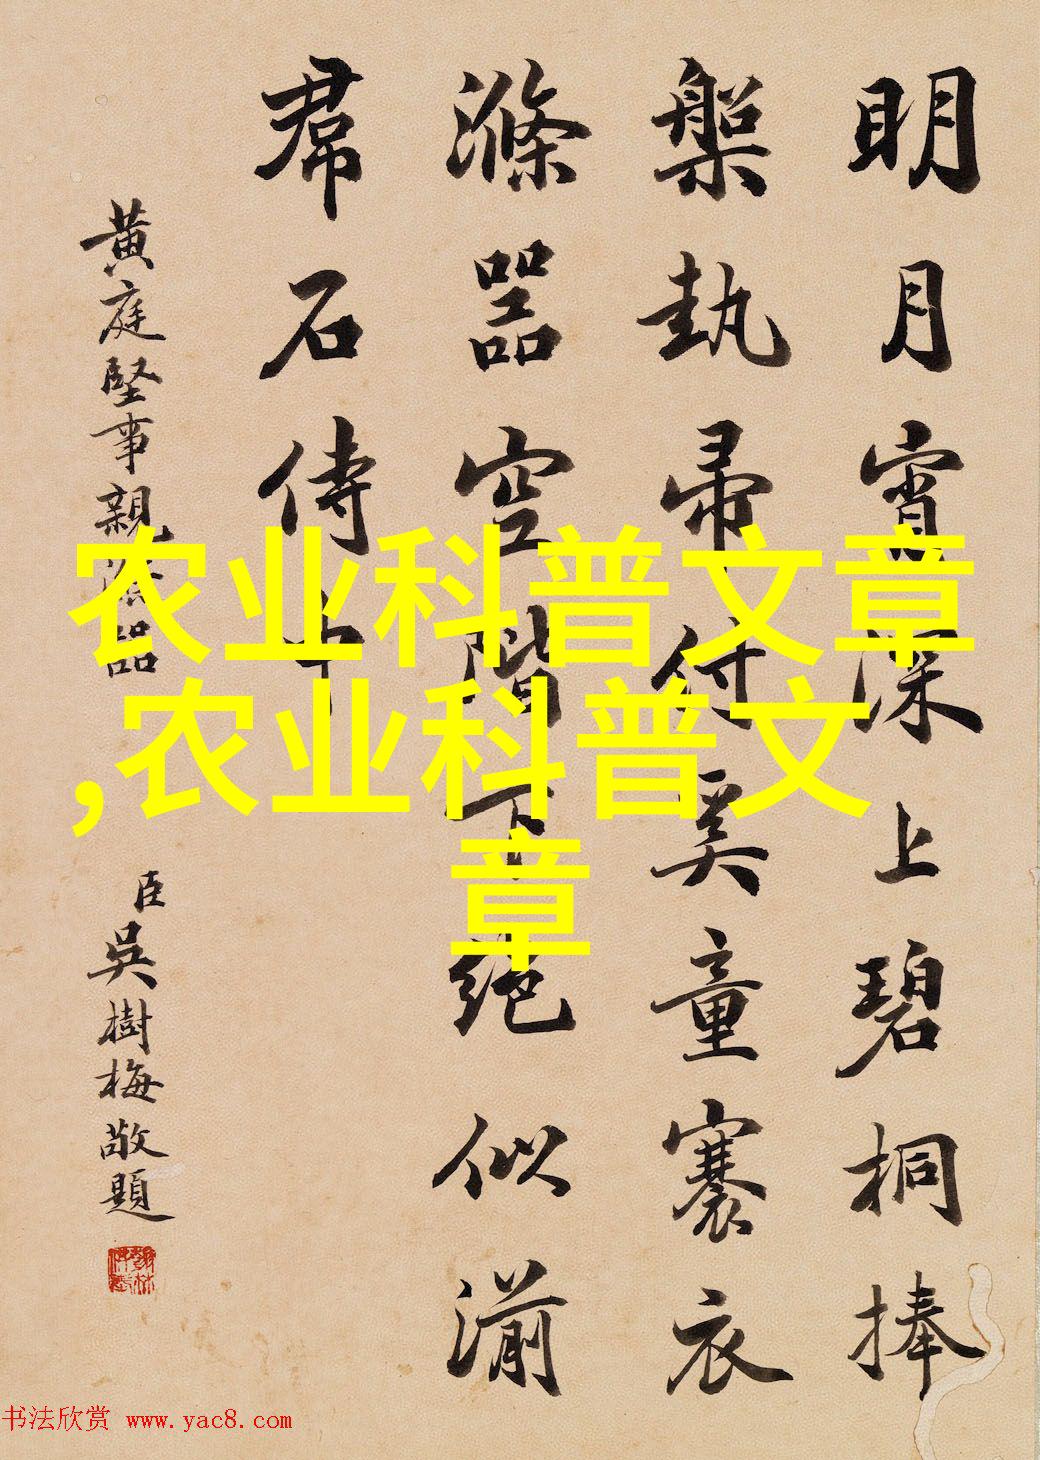 明月宵深上碧桐捧
槃執帚付奚童褰衣
滌器空階下絕似湔
帬石侍中
黃庭堅事親滌器
臣吳樹梅敬題
农业科普文章
,农业科普文
章
书法欣赏 www.yac8.com